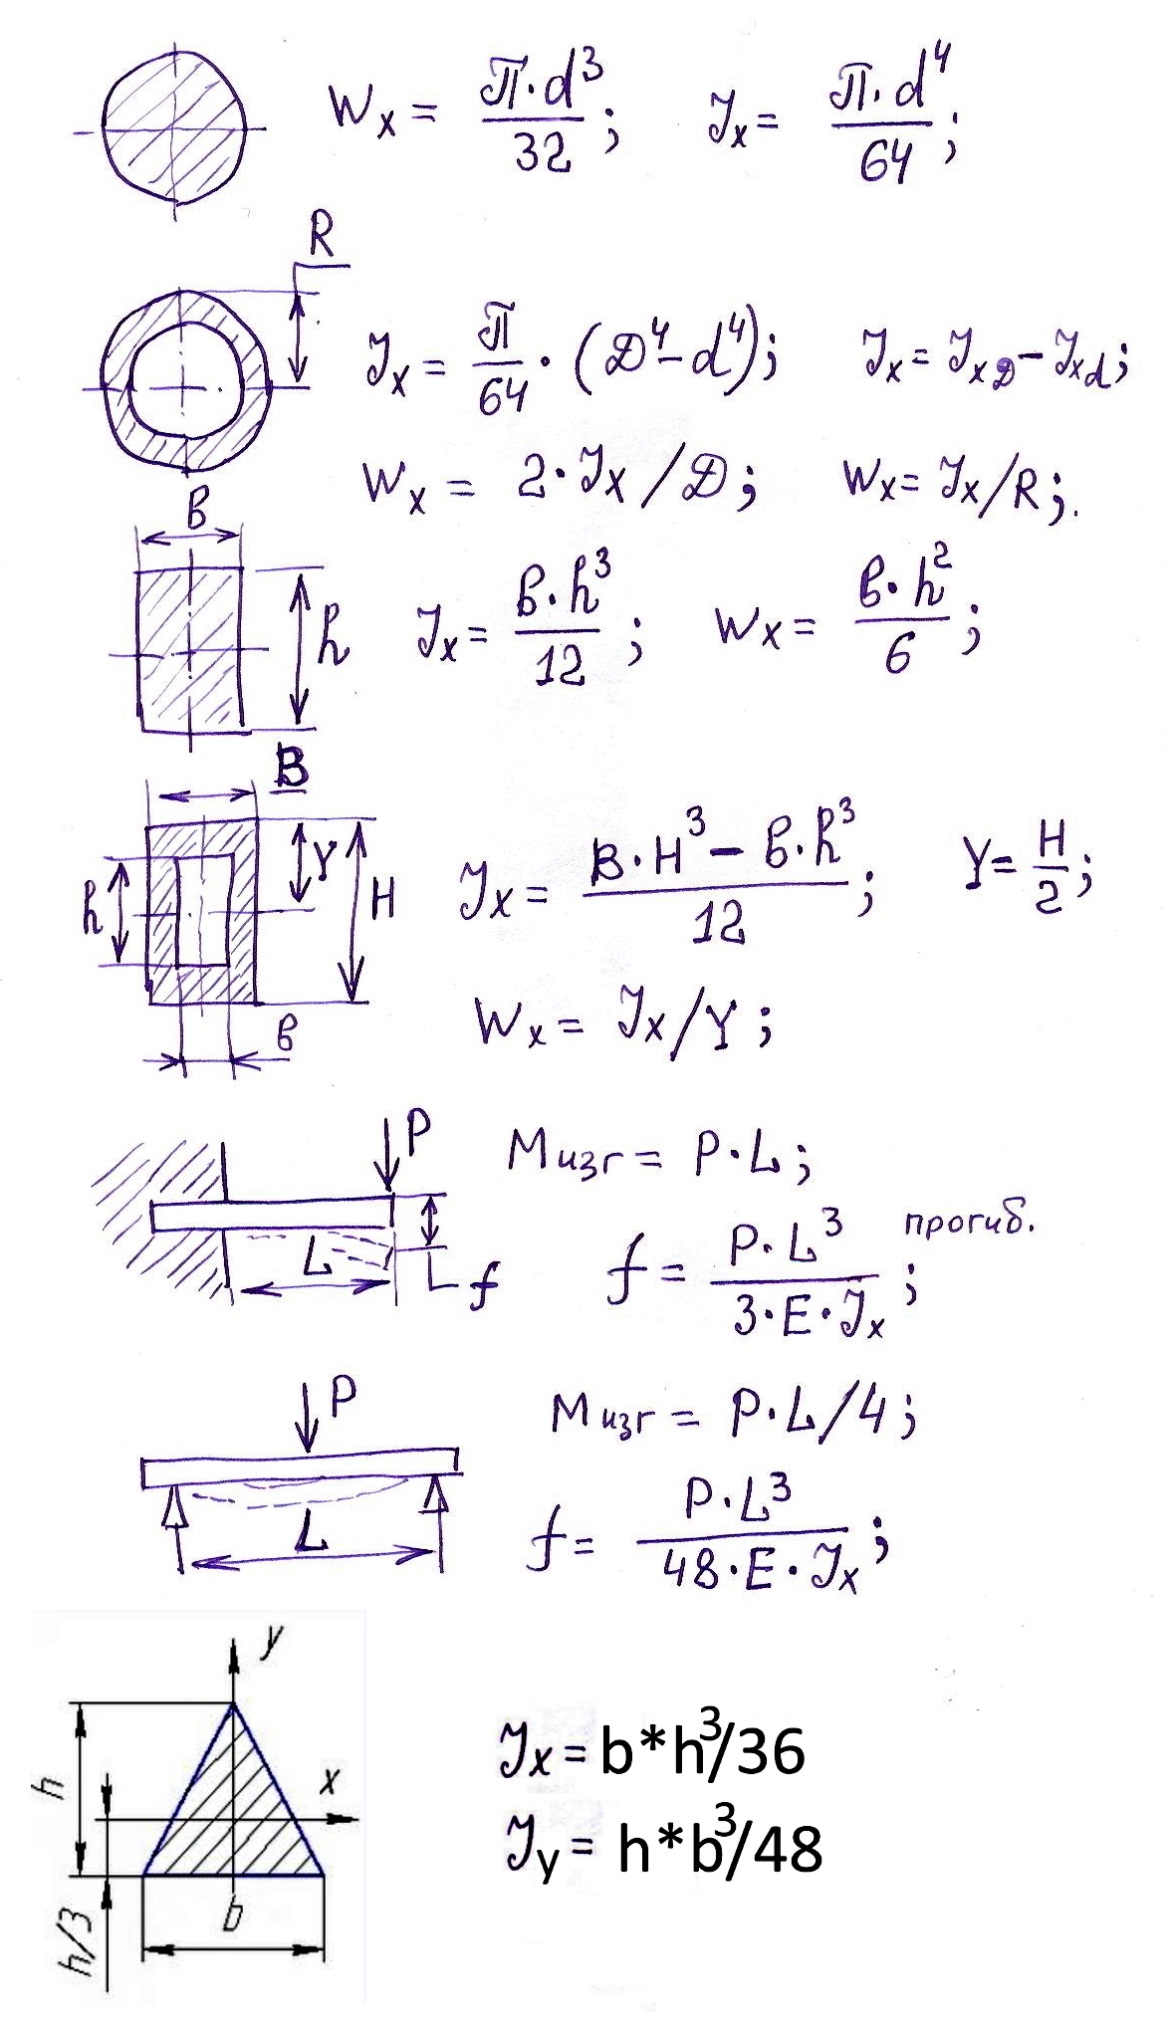 Wx = П·d³/32; Jx = П·d⁴/64;
R
Jx = П/64 · (D⁴-d⁴); Jx = JxD - Jxd;
Wx = 2·Jx/D; Wx = Jx/R;.
в
h
Jx = в·h³/12; Wx = в·h²/6;
B
h Y H
Jx = B·H³ - в·h³/12; Y = H/2;
Wx = Jx/Y;
в
P
Mизг = P·L;
L f
f = P·L³/3·E·Jx; прогиб.
P
Mизг = P·L/4;
L
f = P·L³/48·E·Jx;
y
h
x
Jx = b*h³/36
Jy = h*b³/48
b
h/3